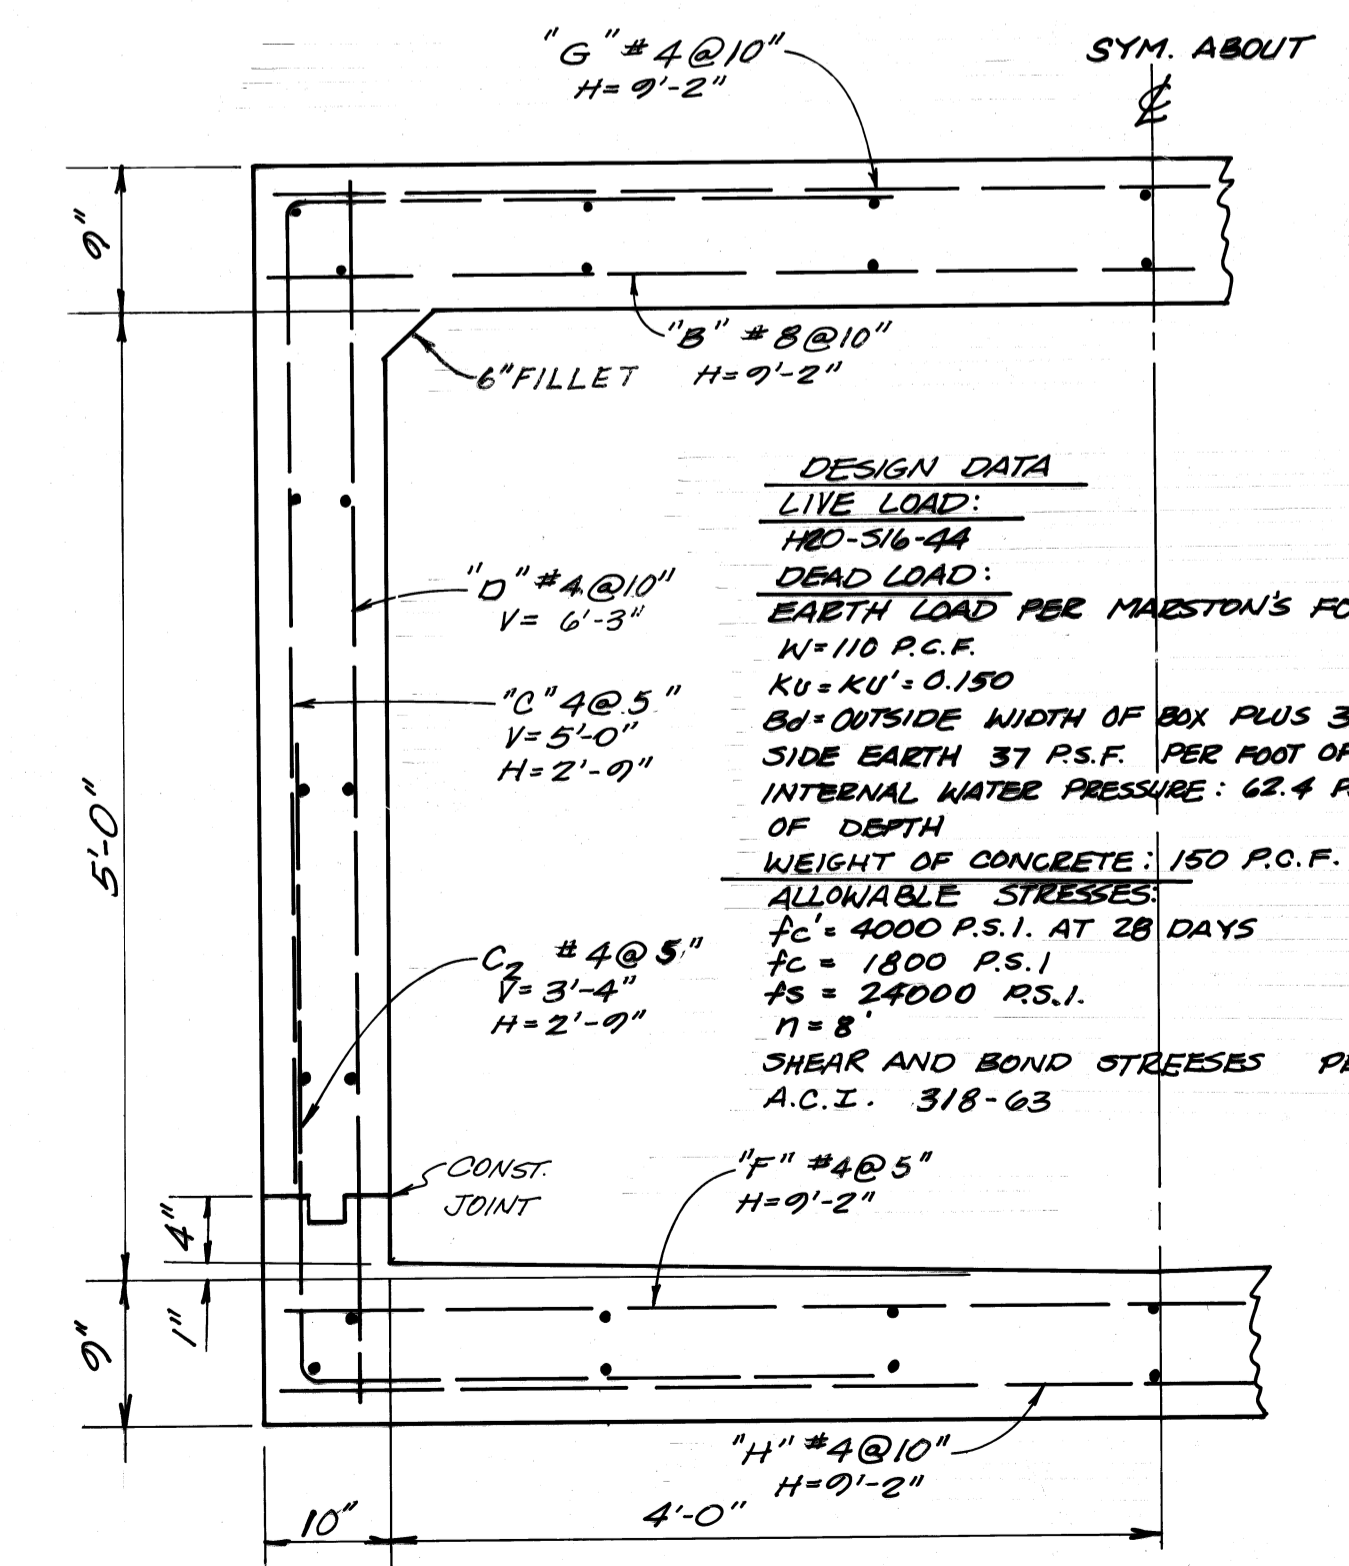 "G" #4@10"
H=9'-2"
SYM. ABOUT
℄
9"
"B" #8@10"
H=9'-2"
6"FILLET
DESIGN DATA
LIVE LOAD:
H20-S16-44
DEAD LOAD:
EARTH LOAD PER MARSTON'S
W=110 P.C.F.
KU=KU'=0.150
Bd=OUTSIDE WIDTH OF BOX PLUS
SIDE EARTH 37 P.S.F. PER FOOT OF
INTERNAL WATER PRESSURE: 62.4
OF DEPTH
WEIGHT OF CONCRETE: 150 P.C.F.
ALLOWABLE STRESSES:
fc'= 4000 P.S.I. AT 28 DAYS
fc = 1800 P.S.I
fs = 24000 P.S.I.
n=8
SHEAR AND BOND STREESES
A.C.I. 318-63
"D" #4@10"
V= 6'-3"
"C" 4@5"
V=5'-0"
H=2'-9"
5'-0"
C2 #4@5"
V=3'-4"
H=2'-9"
CONST.
JOINT
"F" #4@5"
H=9'-2"
4"
1"
9"
"H" #4@10"
H=9'-2"
10"
4'-0"